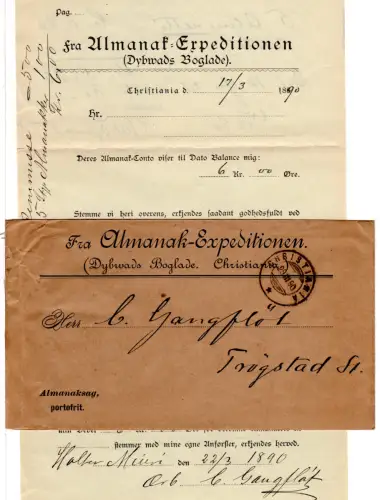 Pag.
Fra Almanak-Expeditionen
(Dybwads Boglade).
Christiania d. 17/3 1890
Hr.
Deres Almanak-Conto viser til Dato Balance mig:
6 Kr. 00 Øre.
Stemme vi heri overens, erkjendes saadant godhedsfuldt ved
Fra Almanak-Expeditionen.
(Dybwads Boglade. Christiania.
CHRISTIANIA
Herr C. Gangfløt
Trøgstad St.
Almanaksag,
portofrit.
stemmer med mine egne Anførsler, erkjendes herved.
den 22/3 1890
C. Gangfløt